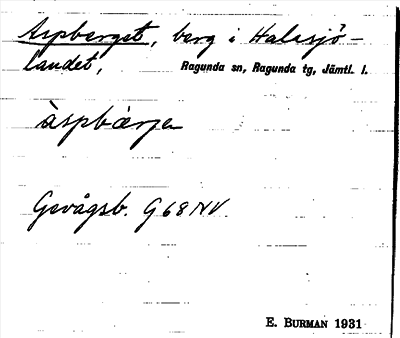 Aspberget, berg i Halasjö-
landet, Ragunda sn, Ragunda tg, Jämtl. l.
àspbærjen
Gevågsb. G68NV.
E. BURMAN 1931